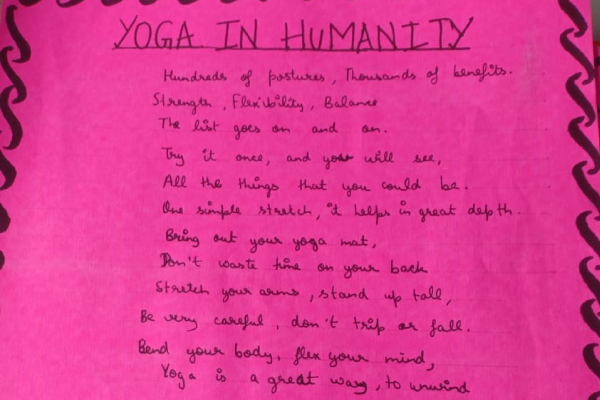 YOGA IN HUMANITY
Hundreds of postures, Thousands of benefits.
Strength, Flexibility, Balance
The list goes on and on.
Try it once, and you will see,
All the things that you could be.
One simple stretch, it helps in great depth.
Bring out your yoga mat,
Don't waste time on your back
Stretch your arms, stand up tall,
Be very careful, don't trip or fall.
Bend your body, flex your mind,
Yoga is a great way, to unwind